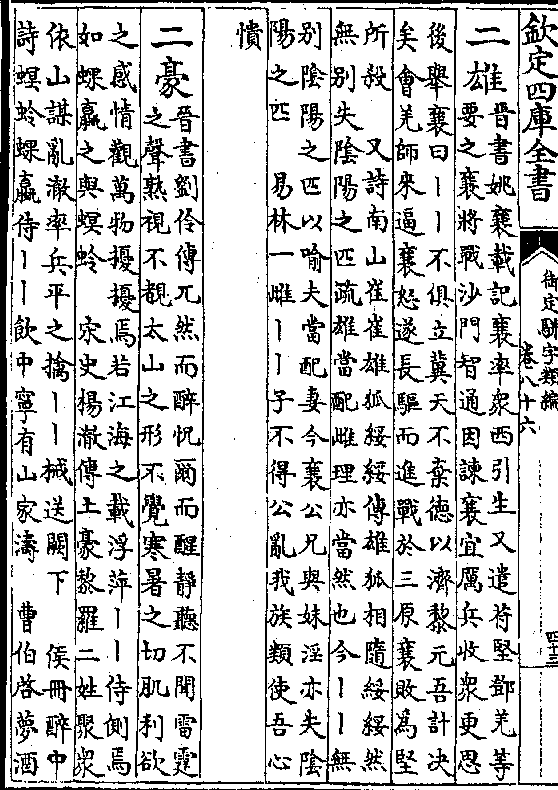 欽定四庫全書
御定駢字類編
卷八十六
四十三
二雄 晉書姚襄載記襄率衆西引生又遣苻堅鄧羌等
要之襄將戰沙門智通因諫襄宜厲兵收衆更思
後舉襄曰丨丨不俱立冀天不棄德以濟黎元吾計决
矣會羌師來逼襄怒遂長驅而進戰於三原襄敗為堅
所殺　又詩南山崔崔雄狐綏綏傳雄狐相隨綏綏然
無别失陰陽之匹疏雄當配雌理亦當然也今丨丨無
别陰陽之匹以喻夫當配妻今襄公兄與妹淫亦失陰
陽之匹　易林一雌丨丨子不得公亂我族類使吾心
憒
二豪 晉書劉伶傳兀然而醉怳爾而醒靜聽不聞雷霆
之聲熟視不覩太山之形不覺寒暑之切肌利欲
之感情觀萬物擾擾焉若江海之載浮萍丨丨侍側焉
如蜾蠃之與螟蛉　宋史楊澈傳土豪黎羅二姓聚衆
依山謀亂澈率兵平之擒丨丨械送闕下　侯冊醉中
詩螟蛉蜾蠃侍丨丨飲中寧有山家濤　曹伯啓夢酒